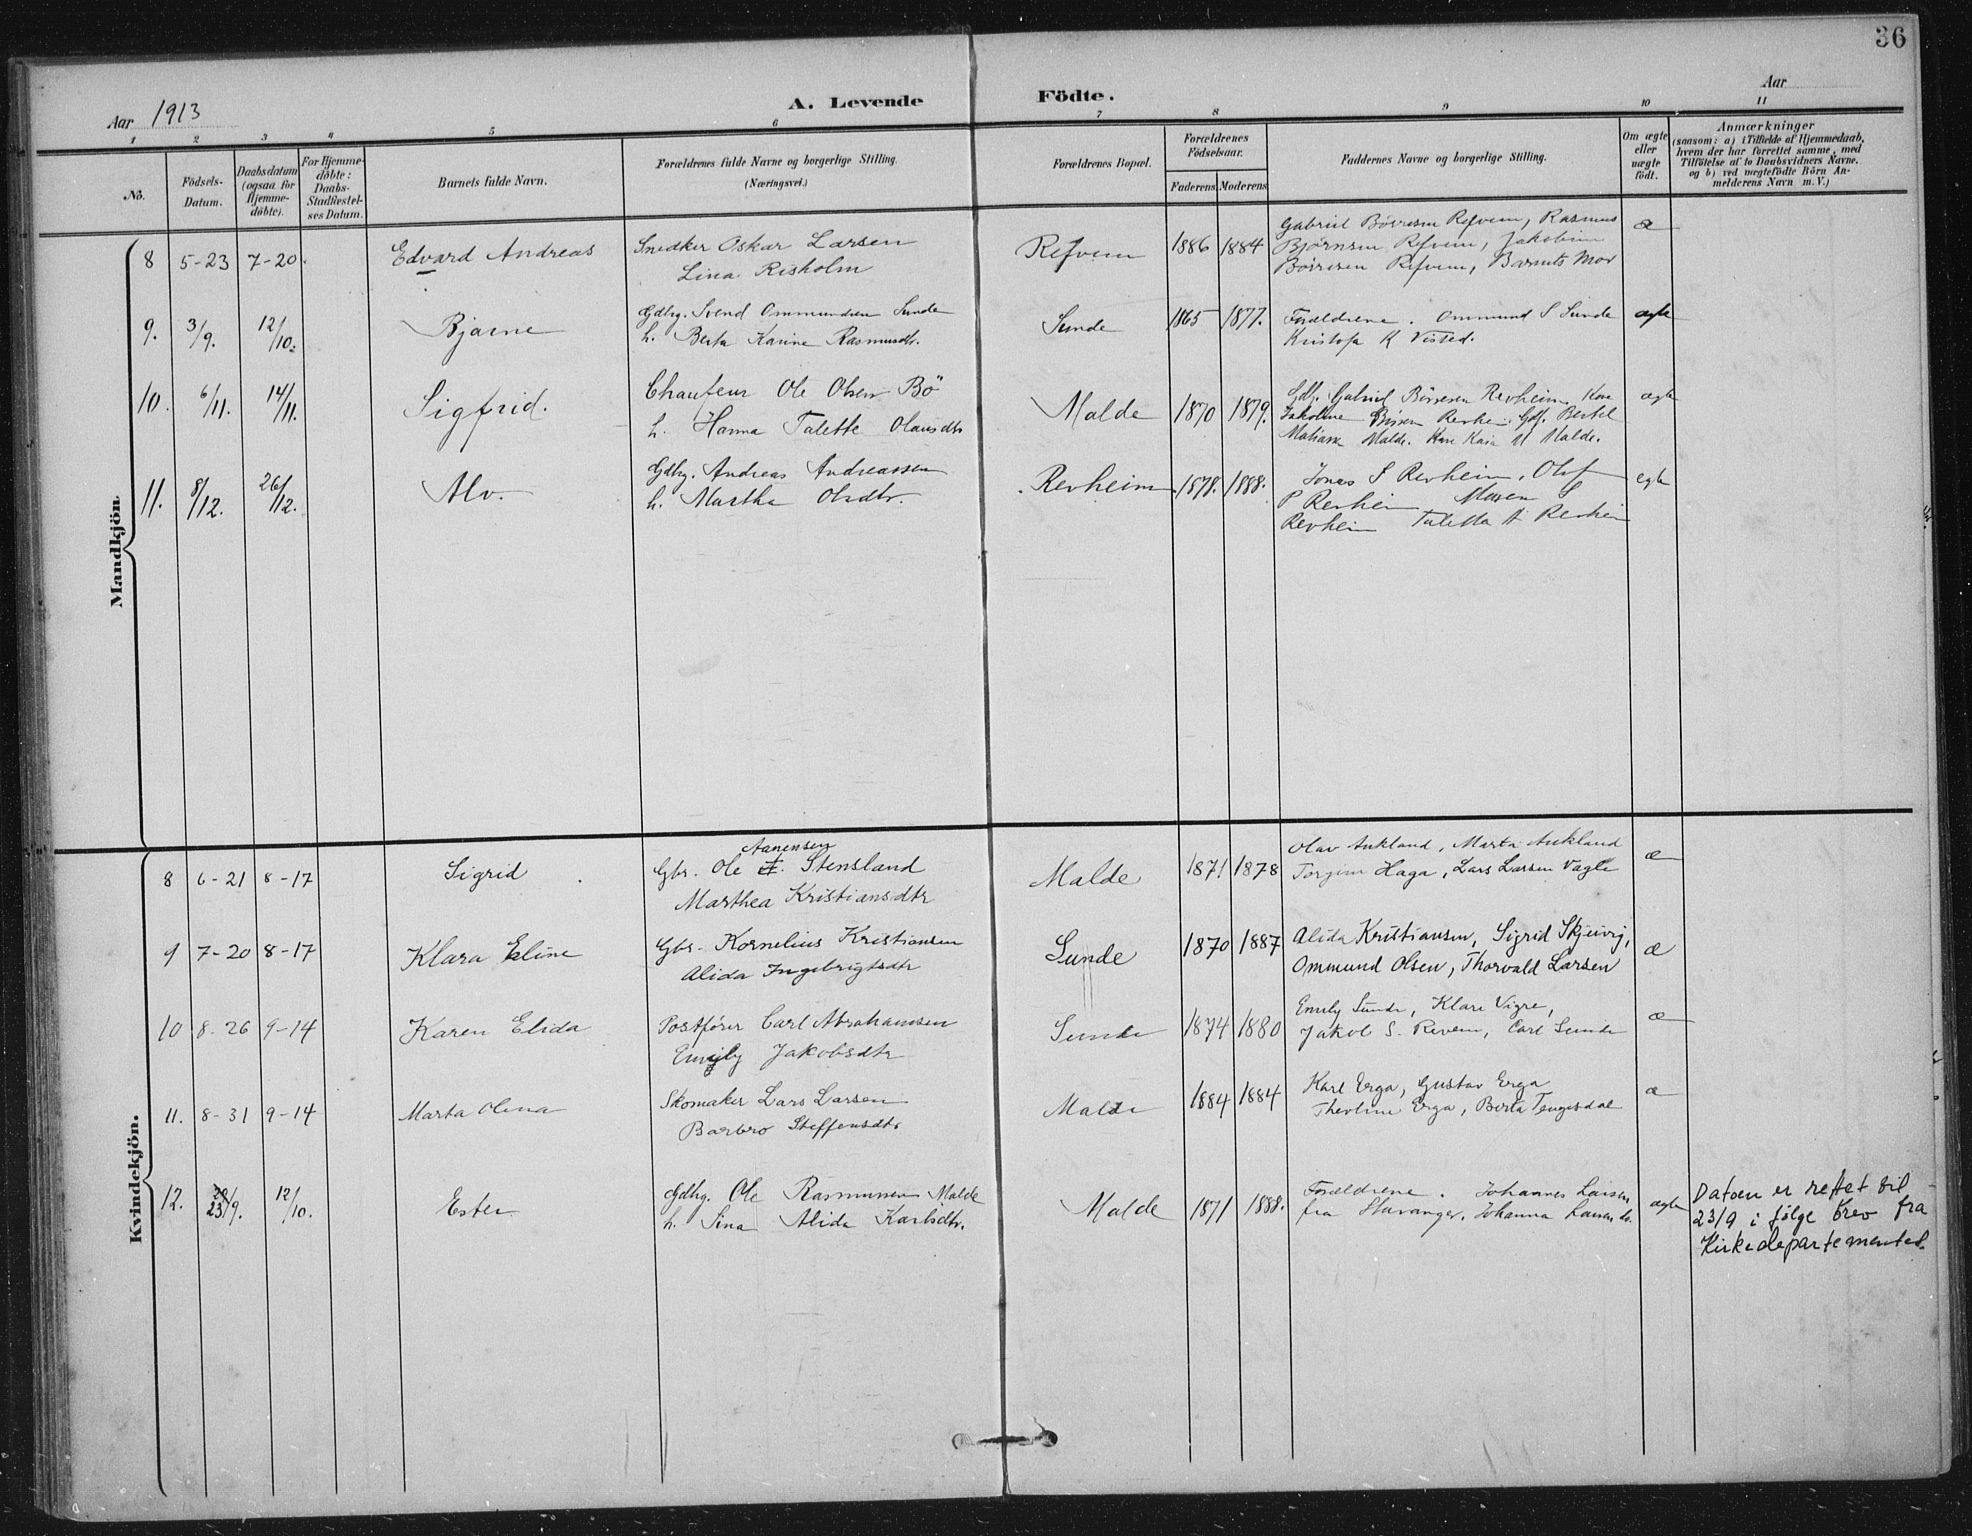 36
Aar 1913
A. Levende Födte.
Aar
1 2 3 4 5 6 7 8 9 10 11
No.
Födsels-Datum.
Daabsdatum (ogsaa for Hjemmedöbte).
For Hjemmedöbte: Daabs-Stadfæstelses Datum.
Barnets fulde Navn.
Forældrenes fulde Navne og borgerlige Stilling.
(Næringsvei.)
Forældrenes Bopæl.
Forældrenes Födselsaar.
Faderens Moderens
Faddernes Navne og borgerlige Stilling.
Om ægte eller uægte födt.
Anmærkninger
(saasom: a) i Tilfælde af Hjemmedaab,
hvem der har forrettet samme, med
Tilföielse af to Daabsvidners Navne.
og b) ved uægtefödte Börn Anmelderens Navn m. V.)
Mandkjön
8 5-23 7-20 Edvard Andreas Snedker Oskar Larsen Refvem 1886 1884 Gabriel Börresen Refvem, Rasmus æ
Lina Risholm Björnsen Refvem, Jakobine
Börresen Refvem, Barnets Mor
9. 3/9. 12/10. Bjarne Gdbrg. Svend Ommundsen Sunde Sunde 1865 1877. Forældrene. Ommund S Sunde ægte
h. Berta Karine Rasmusdtr. Kristofa K Visted.
10. 6/11. 14/11. Sigfrid. Chaufeur Ole Olsen Bö Malde 1870 1879. Gdbr. Gabriel Börresen Revheim, Kone ægte
h. Hanna Talette Olausdtr Jakobine Revheim. Gdbr. Bertel
Matiasse Malde. Kone Kaia M Malde.
11. 8/12. 26/12. Alv. Gdbrg. Andreas Andreassen Revheim 1878. 1888. Jonas S Revheim, Olof egte
h. Martha Olsdtr. P Revheim Maren S
Revheim Taletta A Revheim
Kvindekjön.
8 6-21 8-17 Sigrid Gbr. Ole Aanensen Stensland Malde 1871 1878 Olav Aukland, Marta Aukland æ
Marthea Kristiansdtr Torgrim Haga, Lars Larsen Vagle
9 7-20 8-17 Klara Eline Gbr. Kornelius Kristiansen Sunde 1870 1887 Alida Kristiansen, Sigrid Skjeivig, æ
Alida Ingebrigtsdtr Ommund Olsen, Thorvald Larsen
10 8-26 9-14 Karen Elida Postförer Carl Abrahamsen Sunde 1874 1880 Emily Sunde, Klare Vigre, æ
Emily Jakobsdtr Jakob S. Revem, Carl Sunde
11. 8-31 9-14 Marta Olena Skomaker Lars Larsen Malde 1884 1884 Karl Erga, Gustav Erga æ
Barbro Steffensdtr Theoline Erga, Berta Tengesdal
12. 23/9. 12/10. Ester Gdbrg. Ole Rasmussen Malde Malde 1871 1888. Forældrene. Johannes Larsen ægte Datoen er rettet til
h. Sina Alida Karlsdtr. fra Stavanger. Johanna Larsen do. 23/9 i følge brev fra
Kirkedepartementet.